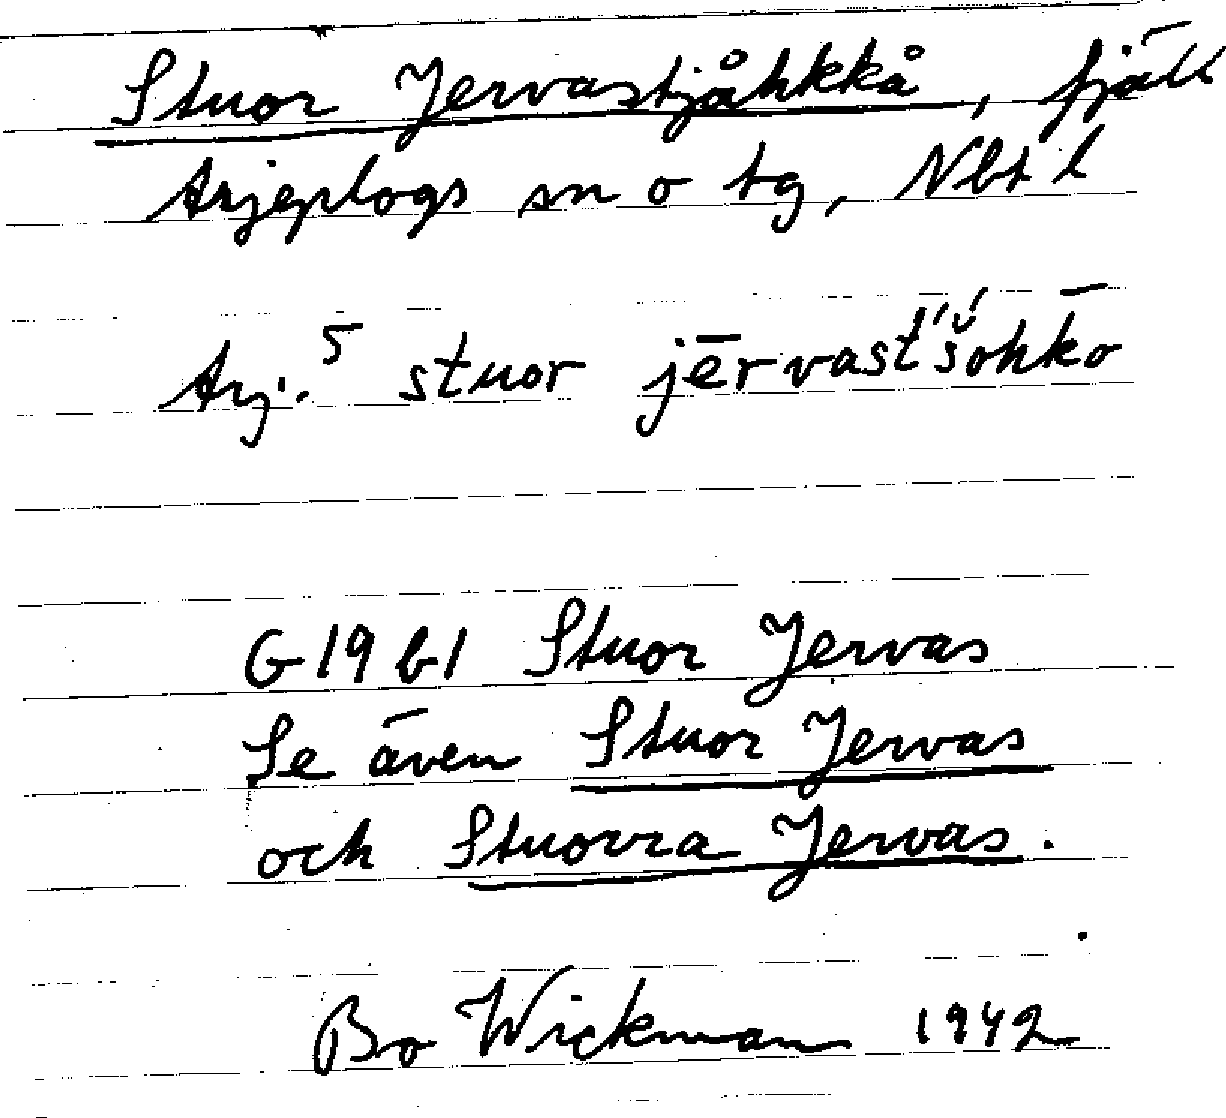 Stuor Jervastjåhkkå, fjäll
Arjeplogs sn o tg, Nbt l
Arj.⁵ stuor jērvast́'š́ohk̄o
G 19 b1 Stuor Jervas
Se även Stuor Jervas
och Stuorra Jervas.
Bo Wickman 1942